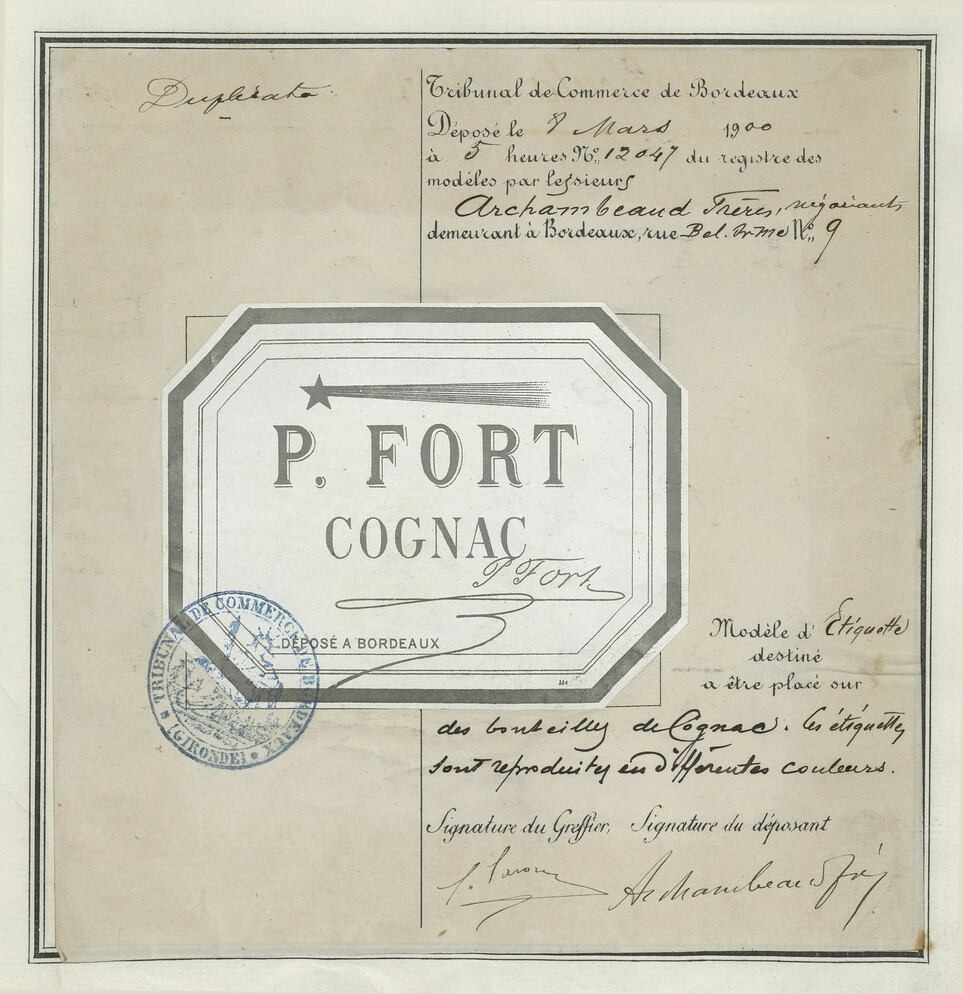 Duplicata
Tribunal de Commerce de Bordeaux
Déposé le 8 Mars 1900
à 5 heures No. 12047 du registre des
modèles par lessieurs
Archambeaud Frères, négociants
demeurant à Bordeaux, rue Bel. Orme No. 9
P. FORT
COGNAC
P Fort
DÉPOSÉ A BORDEAUX
TRIBUNAL DE COMMERCE DE BORDEAUX
(GIRONDE)
Modèle d' Etiquette
destiné
a être placé sur
des bouteilles de Cognac. Les étiquettes
sont reproduites en différentes couleurs.
Signature du Greffier, Signature du déposant
Archambeaud Frès